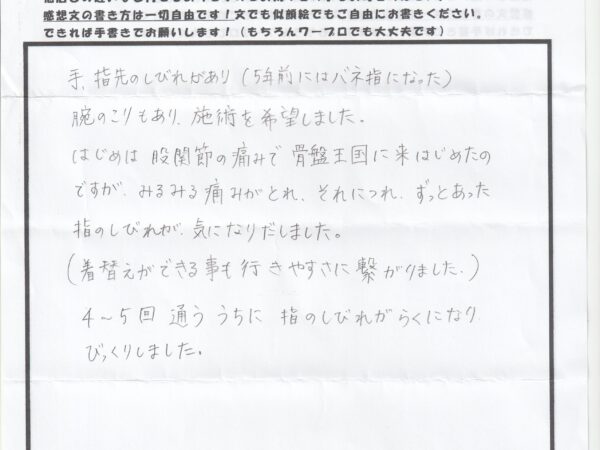 感想文の書き方は一切自由です！文でも似顔絵でもご自由にお書きください。
できれば手書きでお願いします！（もちろんワープロでも大丈夫です）
手、指先のしびれがあり（5年前にはバネ指になった）
腕のこりもあり、施術を希望しました。
はじめは 股関節の痛みで 骨盤王国に来はじめたの
ですが、みるみる痛みがとれ、それにつれ、ずっとあった
指のしびれが、気になりだしました。
（着替えができる事も行きやすさに繋がりました。）
4～5回 通ううちに 指のしびれがらくになり
びっくりしました。